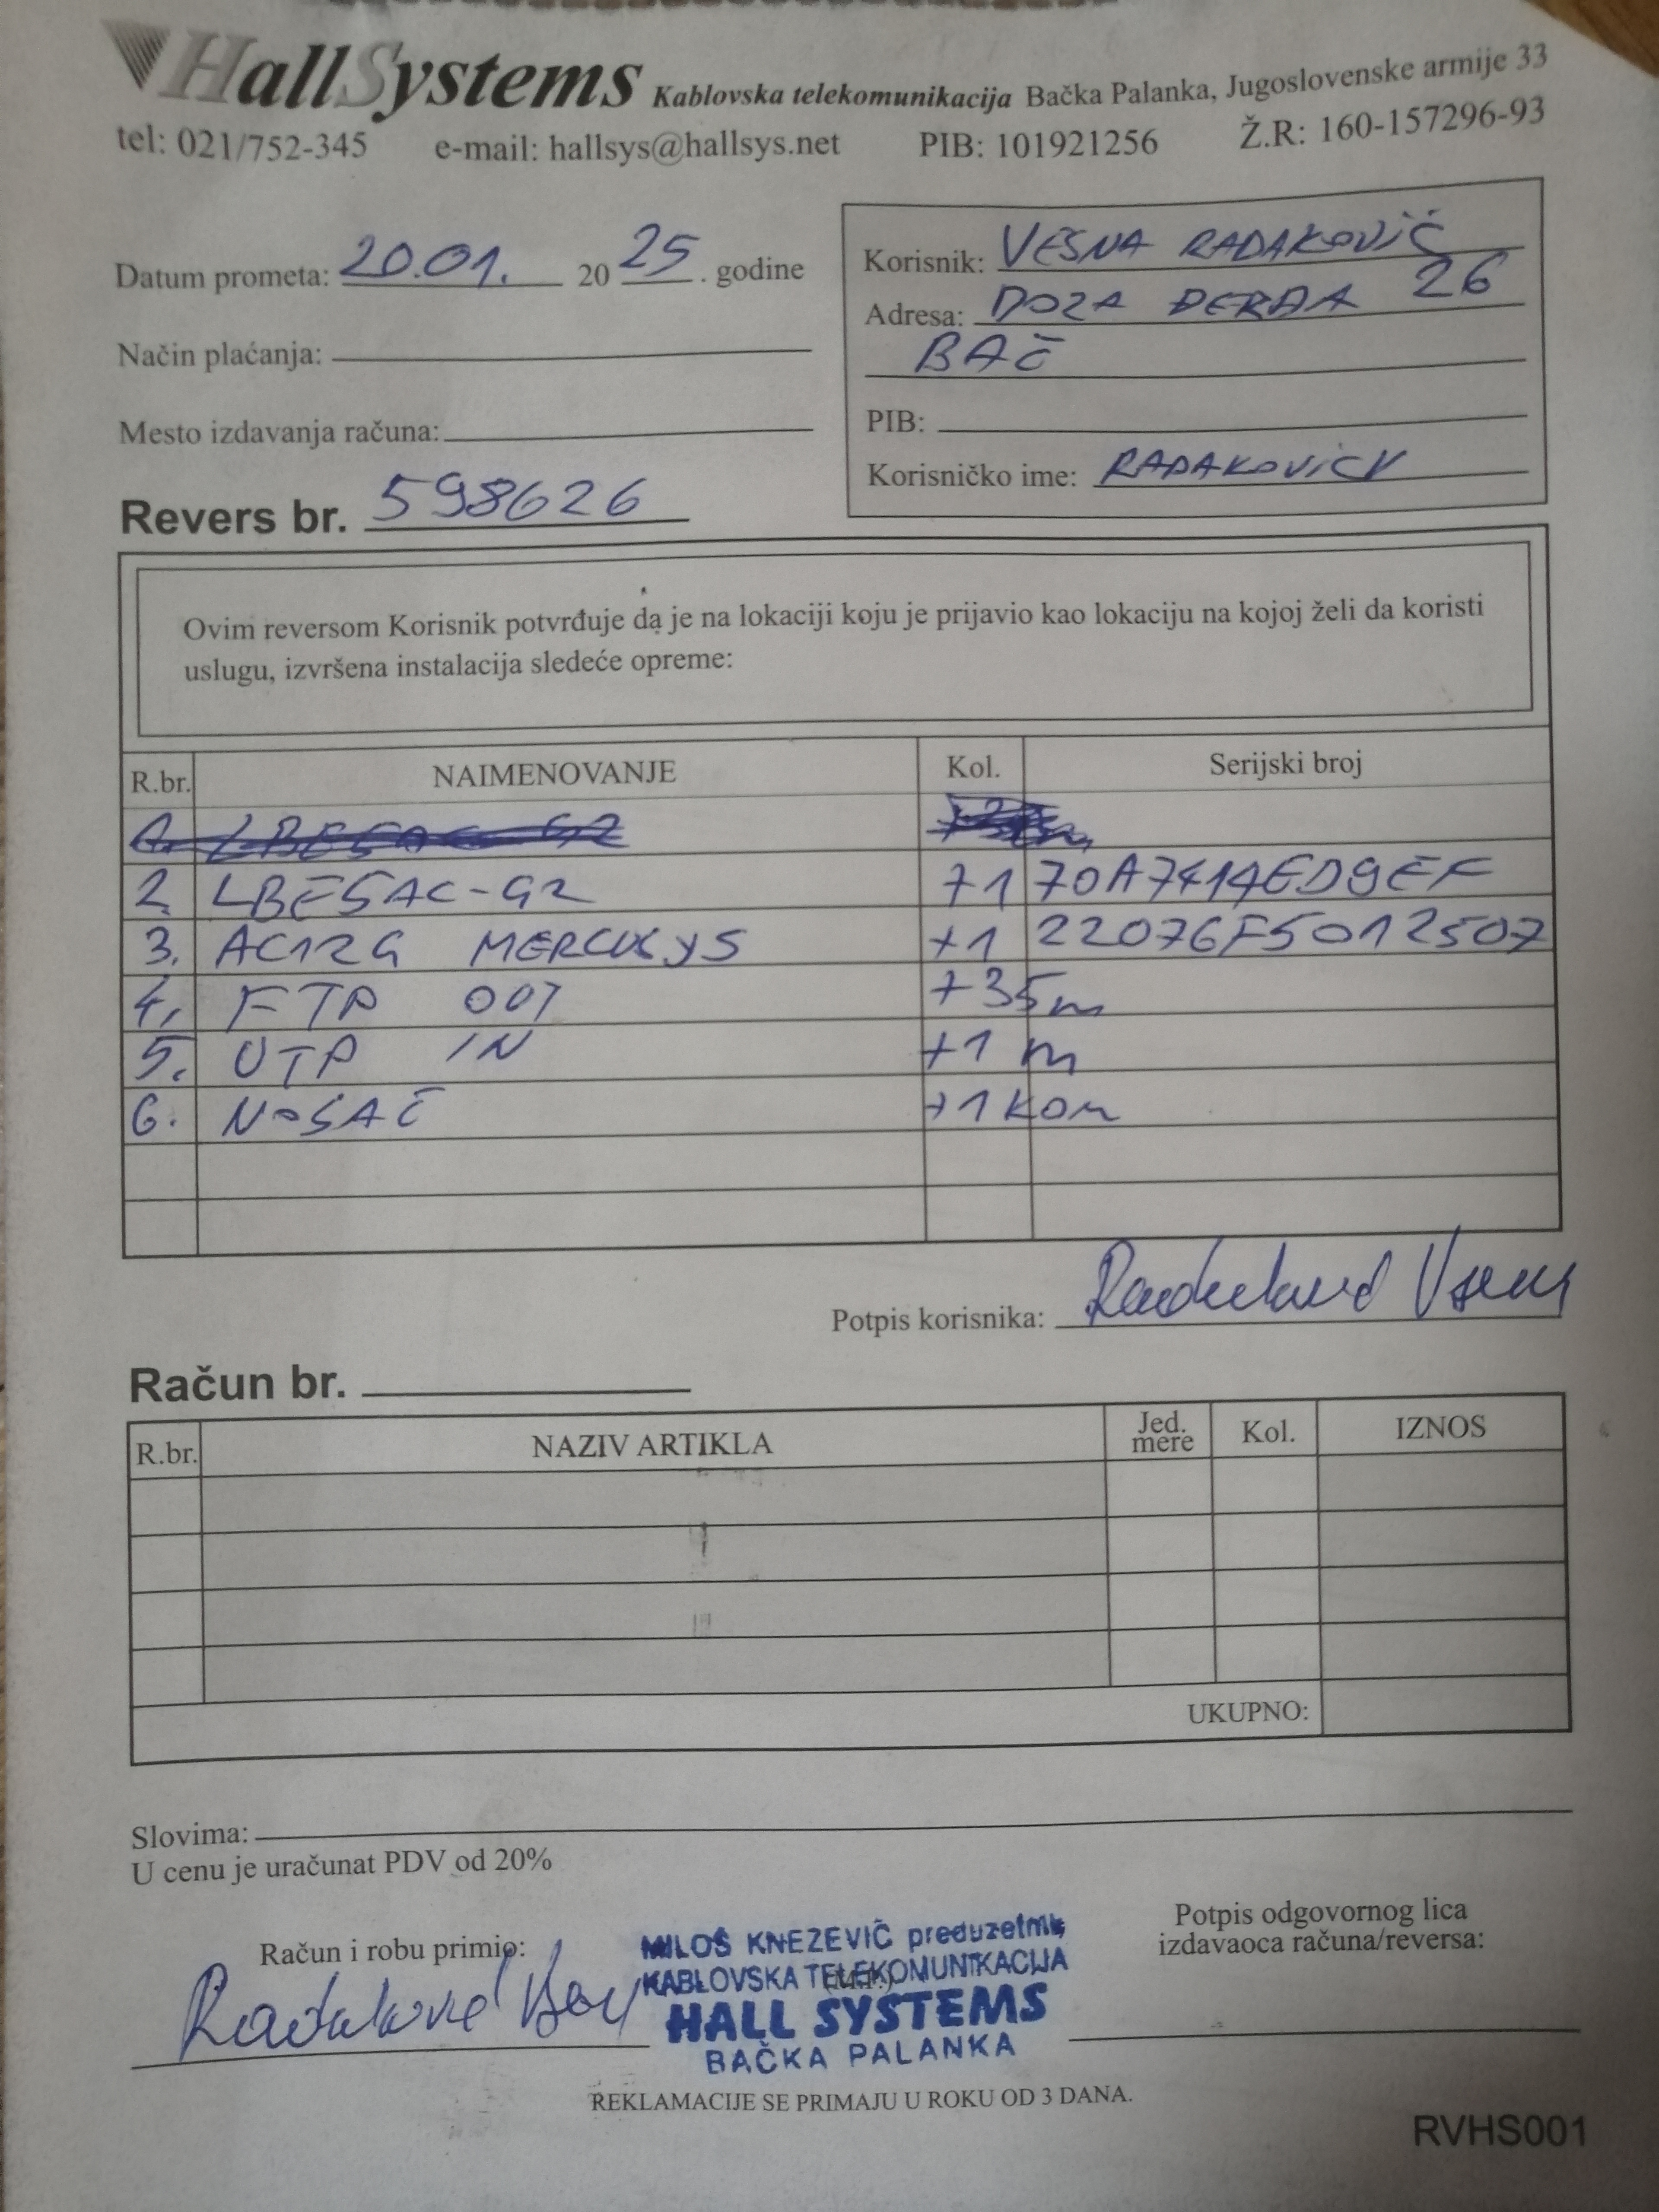 HallSystems Kablovska telekomunikacija Bačka Palanka, Jugoslovenske armije 33
tel: 021/752-345 e-mail: hallsys@hallsys.net PIB: 101921256 Ž.R: 160-157296-93
Datum prometa: 20.01. 2025. godine
Način plaćanja:
Mesto izdavanja računa:
Revers br. 598626
Korisnik: VESNA RADAKOVIĆ
Adresa: DOZA ĐERĐA 26
BAČ
PIB:
Korisničko ime: RADAKOVICV
Ovim reversom Korisnik potvrđuje da je na lokaciji koju je prijavio kao lokaciju na kojoj želi da koristi
uslugu, izvršena instalacija sledeće opreme:
R.br. NAIMENOVANJE Kol. Serijski broj
2. LBE5AC-G2 +1 70A7414ED9EF
3. AC12G MERCUSYS +1 22076F5012507
4. FTP OUT +35m
5. UTP IN +1 m
6. NOSAČ +1 KOM
Potpis korisnika:
Račun br.
R.br. NAZIV ARTIKLA Jed. mere Kol. IZNOS
UKUPNO:
Slovima:
U cenu je uračunat PDV od 20%
Račun i robu primio:
MILOŠ KNEZEVIČ preduzetnik
KABLOVSKA TELEKOMUNIKACIJA
HALL SYSTEMS
BAČKA PALANKA
Potpis odgovornog lica
izdavaoca računa/reversa:
REKLAMACIJE SE PRIMAJU U ROKU OD 3 DANA.
RVHS001